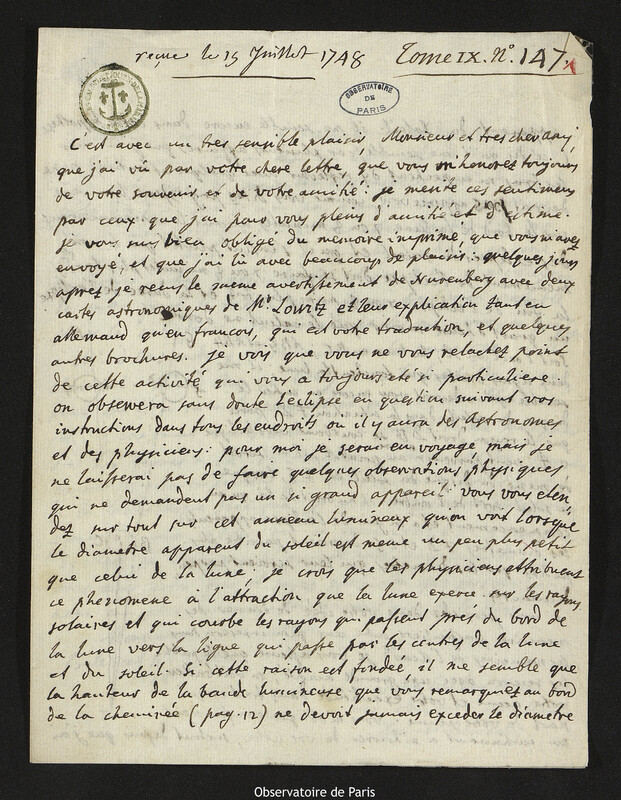 reçue le 15 Juillet 1748 Tome IX. N.º 147.
OBSERVATOIRE
DE
PARIS
C'est avec un tres sensible plaisir, Monsieur et tres cher ami,
que j'ai vû par votre chere lettre, que vous m'honorez toujours
de votre souvenir et de votre amitié: je merite ces sentimens
par ceux que j'ai pour vous pleins d'amitié et d'estime.
je vous suis bien obligé du memoire imprimé, que vous m'avez
envoyé, et que j'ai lû avec beaucoup de plaisir: quelques jours
aprez je reçus le meme avertissement de Nurenberg avec deux
cartes astronomiques de Mr. Lowitz et leur explication tant en
allemand qu'en francois, qui est votre traduction, et quelques
autres brochures. je vois que vous ne vous relachez point
de cette activité qui vous a toujours eté si particuliere.
on observera sans doute l'eclipse en question suivant vos
instructions dans tous les endroits où il y aura des Astronomes
et des physiciens: pour moi je serai en voyage, mais je
ne laisserai pas de faire quelques observations physiques
qui ne demandent pas un si grand appareil. Vous vous eten-
dez sur tout sur cet anneau lumineux qu'on voit lorsque
le diametre apparent du soleil est meme un peu plus petit
que celui de la lune; je crois que les physiciens attribuent
ce phenomene à l'attraction que la lune exerce sur les rayons
solaires et qui courbe les rayons qui passent prés du bord de
la lune vers la ligne qui passe par les centres de la lune
et du soleil. Si cette raison est fondeé il me semble que
la hauteur de la bande lumineuse que vous remarquiez au bord
de la cheminée (pag. 12) ne devoit jamais exceder le diametre
Observatoire de Paris